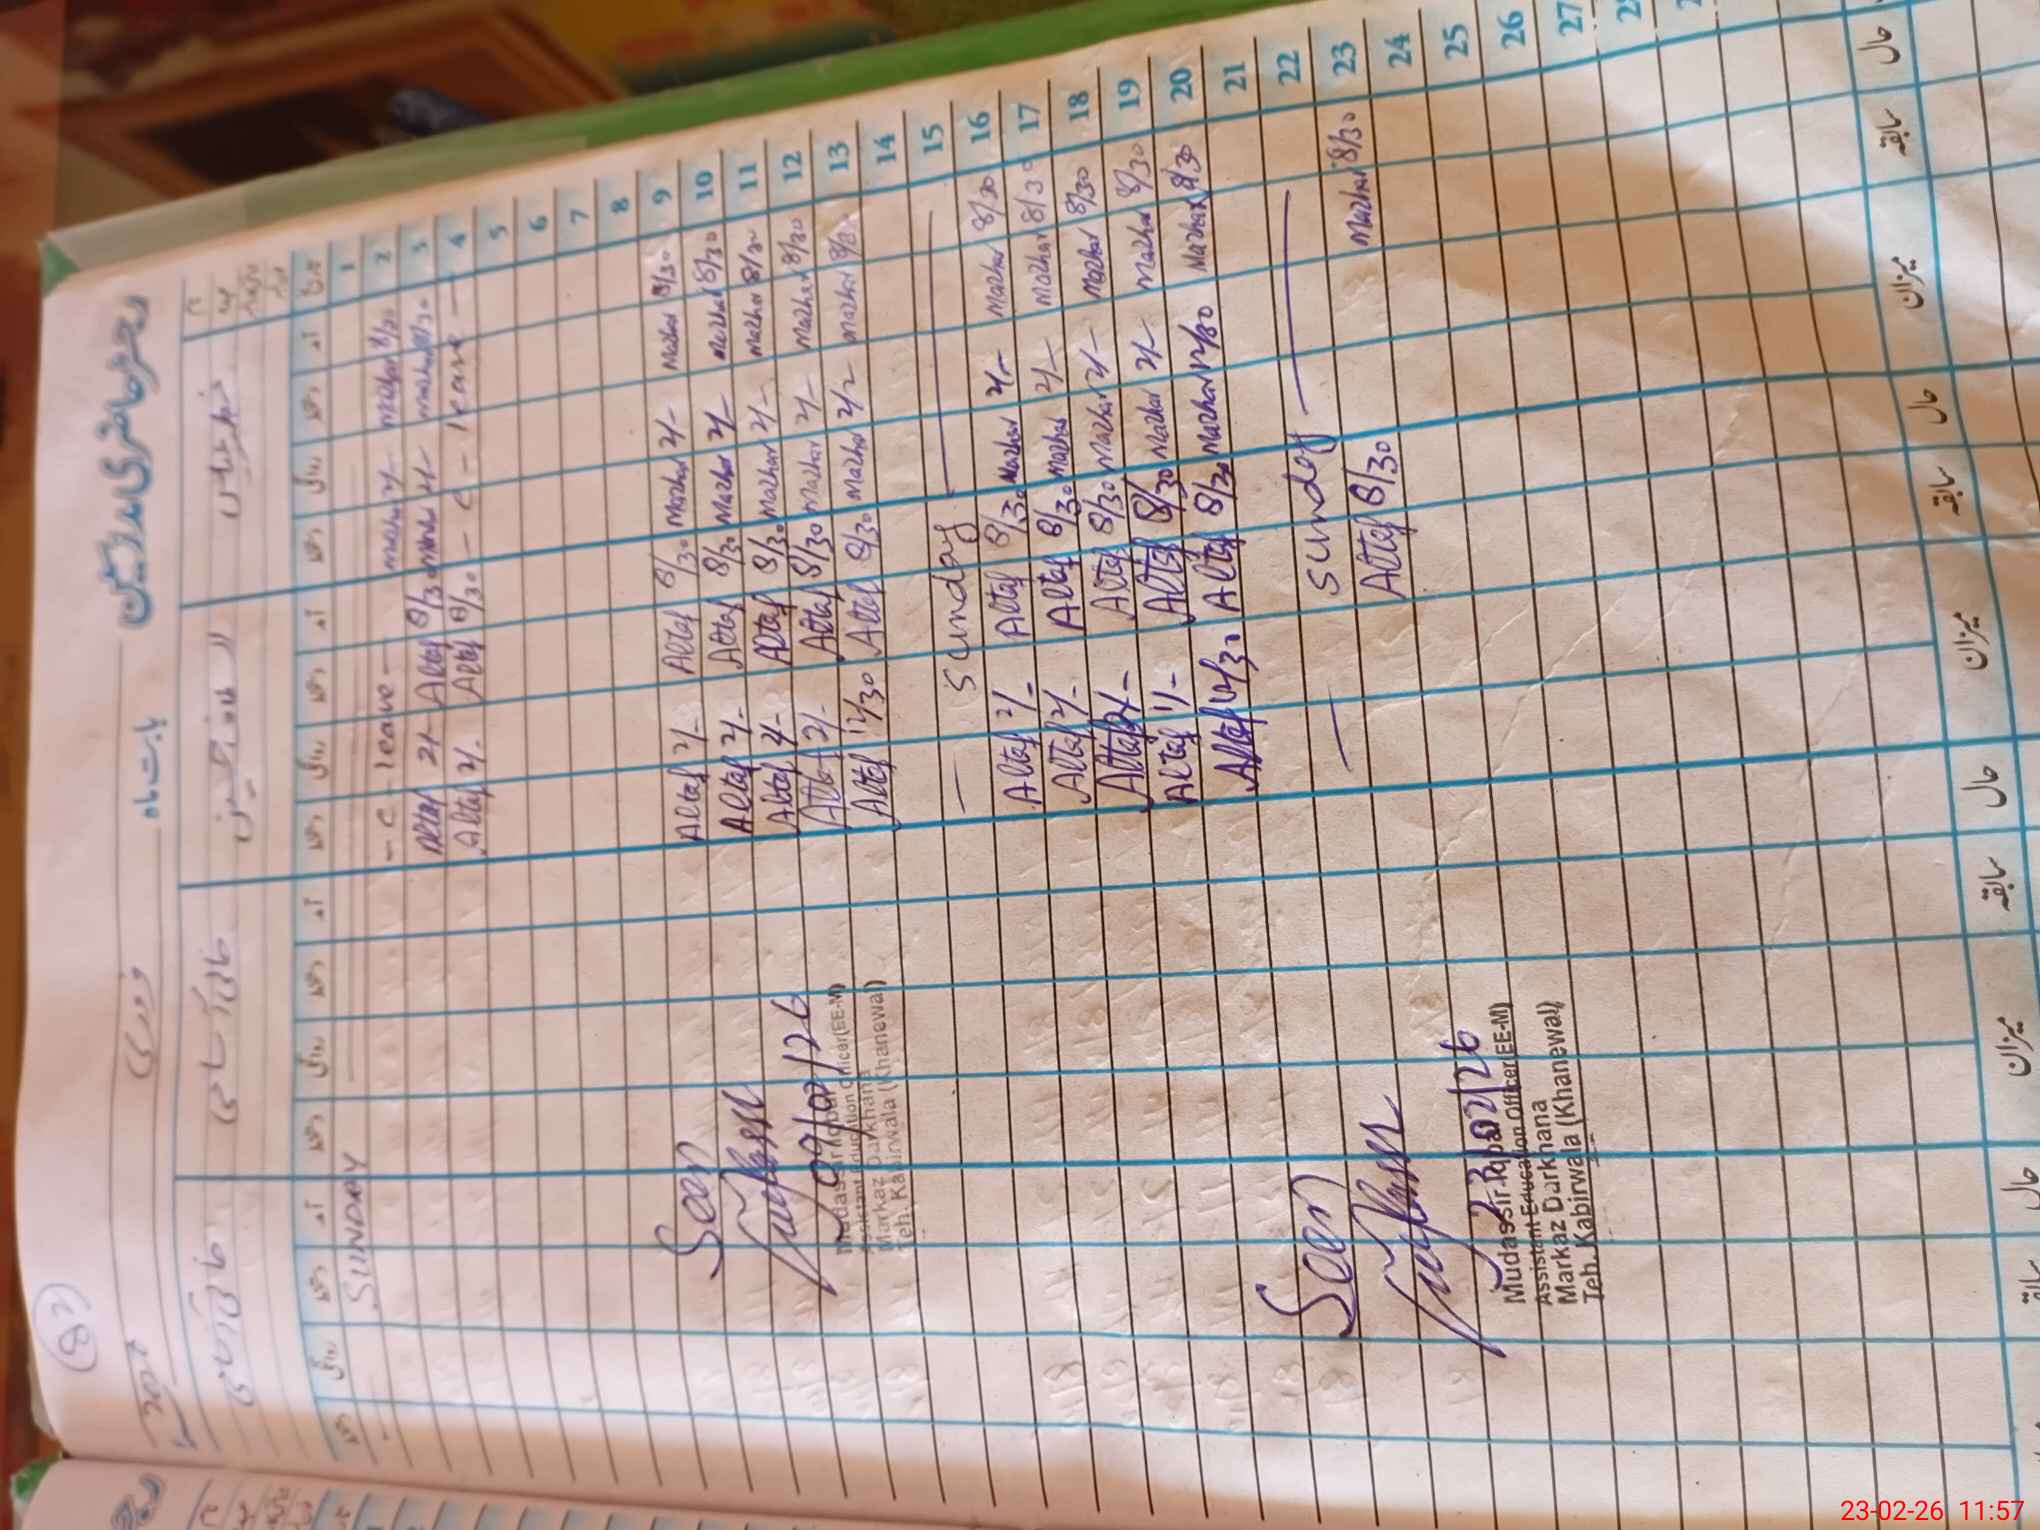 82
رجسٹر حاضری مدرسین
بابت ماہ
فروری
تاریخ
آمد
دستخط
روانگی
دستخط
آمد
دستخط
روانگی
دستخط
آمد
دستخط
روانگی
دستخط
آمد
دستخط
روانگی
دستخط
1 SUNDAY
2 mazhar 8/30 mazhar 2/- - C - leave -
3 mazhar 8/30 mazhar 2/- Altaf 8/30 Altaf 2/-
4 - C - leave - Altaf 8/30 Altaf 2/-
5
6
7
8
9 mazhar 8/30 mazhar 2/- Altaf 8/30 Altaf 2/-
10 mazhar 8/30 mazhar 2/- Altaf 8/30 Altaf 2/-
11 mazhar 8/30 mazhar 2/- Altaf 8/30 Altaf 2/-
12 mazhar 8/30 mazhar 2/- Altaf 8/30 Altaf 2/-
13 mazhar 8/30 mazhar Altaf 8/30 Altaf
14
15 — Sunday —
16 mazhar 8/30 mazhar 2/- Altaf 8/30 Altaf 2/-
17 mazhar 8/30 mazhar 2/- Altaf 8/30 Altaf 2/-
18 mazhar 8/30 mazhar 2/- Altaf 8/30 Altaf 2/-
19 mazhar 8/30 mazhar 2/- Altaf 8/30 Altaf
20 mazhar 8/30 mazhar Altaf 8/30 Altaf
21
22 — Sunday —
23 mazhar 8/30 Altaf 8/30
24
25
26
27
Seen
09/02/26
Mudassir Iqbal
Assistant Education Officer (EE-M)
Markaz Darkhana
Teh. Kabirwala (Khanewal)
Seen
23/02/26
Mudassir Iqbal
Assistant Education Officer (EE-M)
Markaz Darkhana
Teh. Kabirwala (Khanewal)
حال
سابقہ
میزان
حال
سابقہ
میزان
حال
سابقہ
میزان
حال
سابقہ
23-02-26 11:57